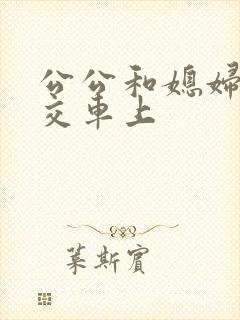 公公和媳婦
交車上
葉斯賓